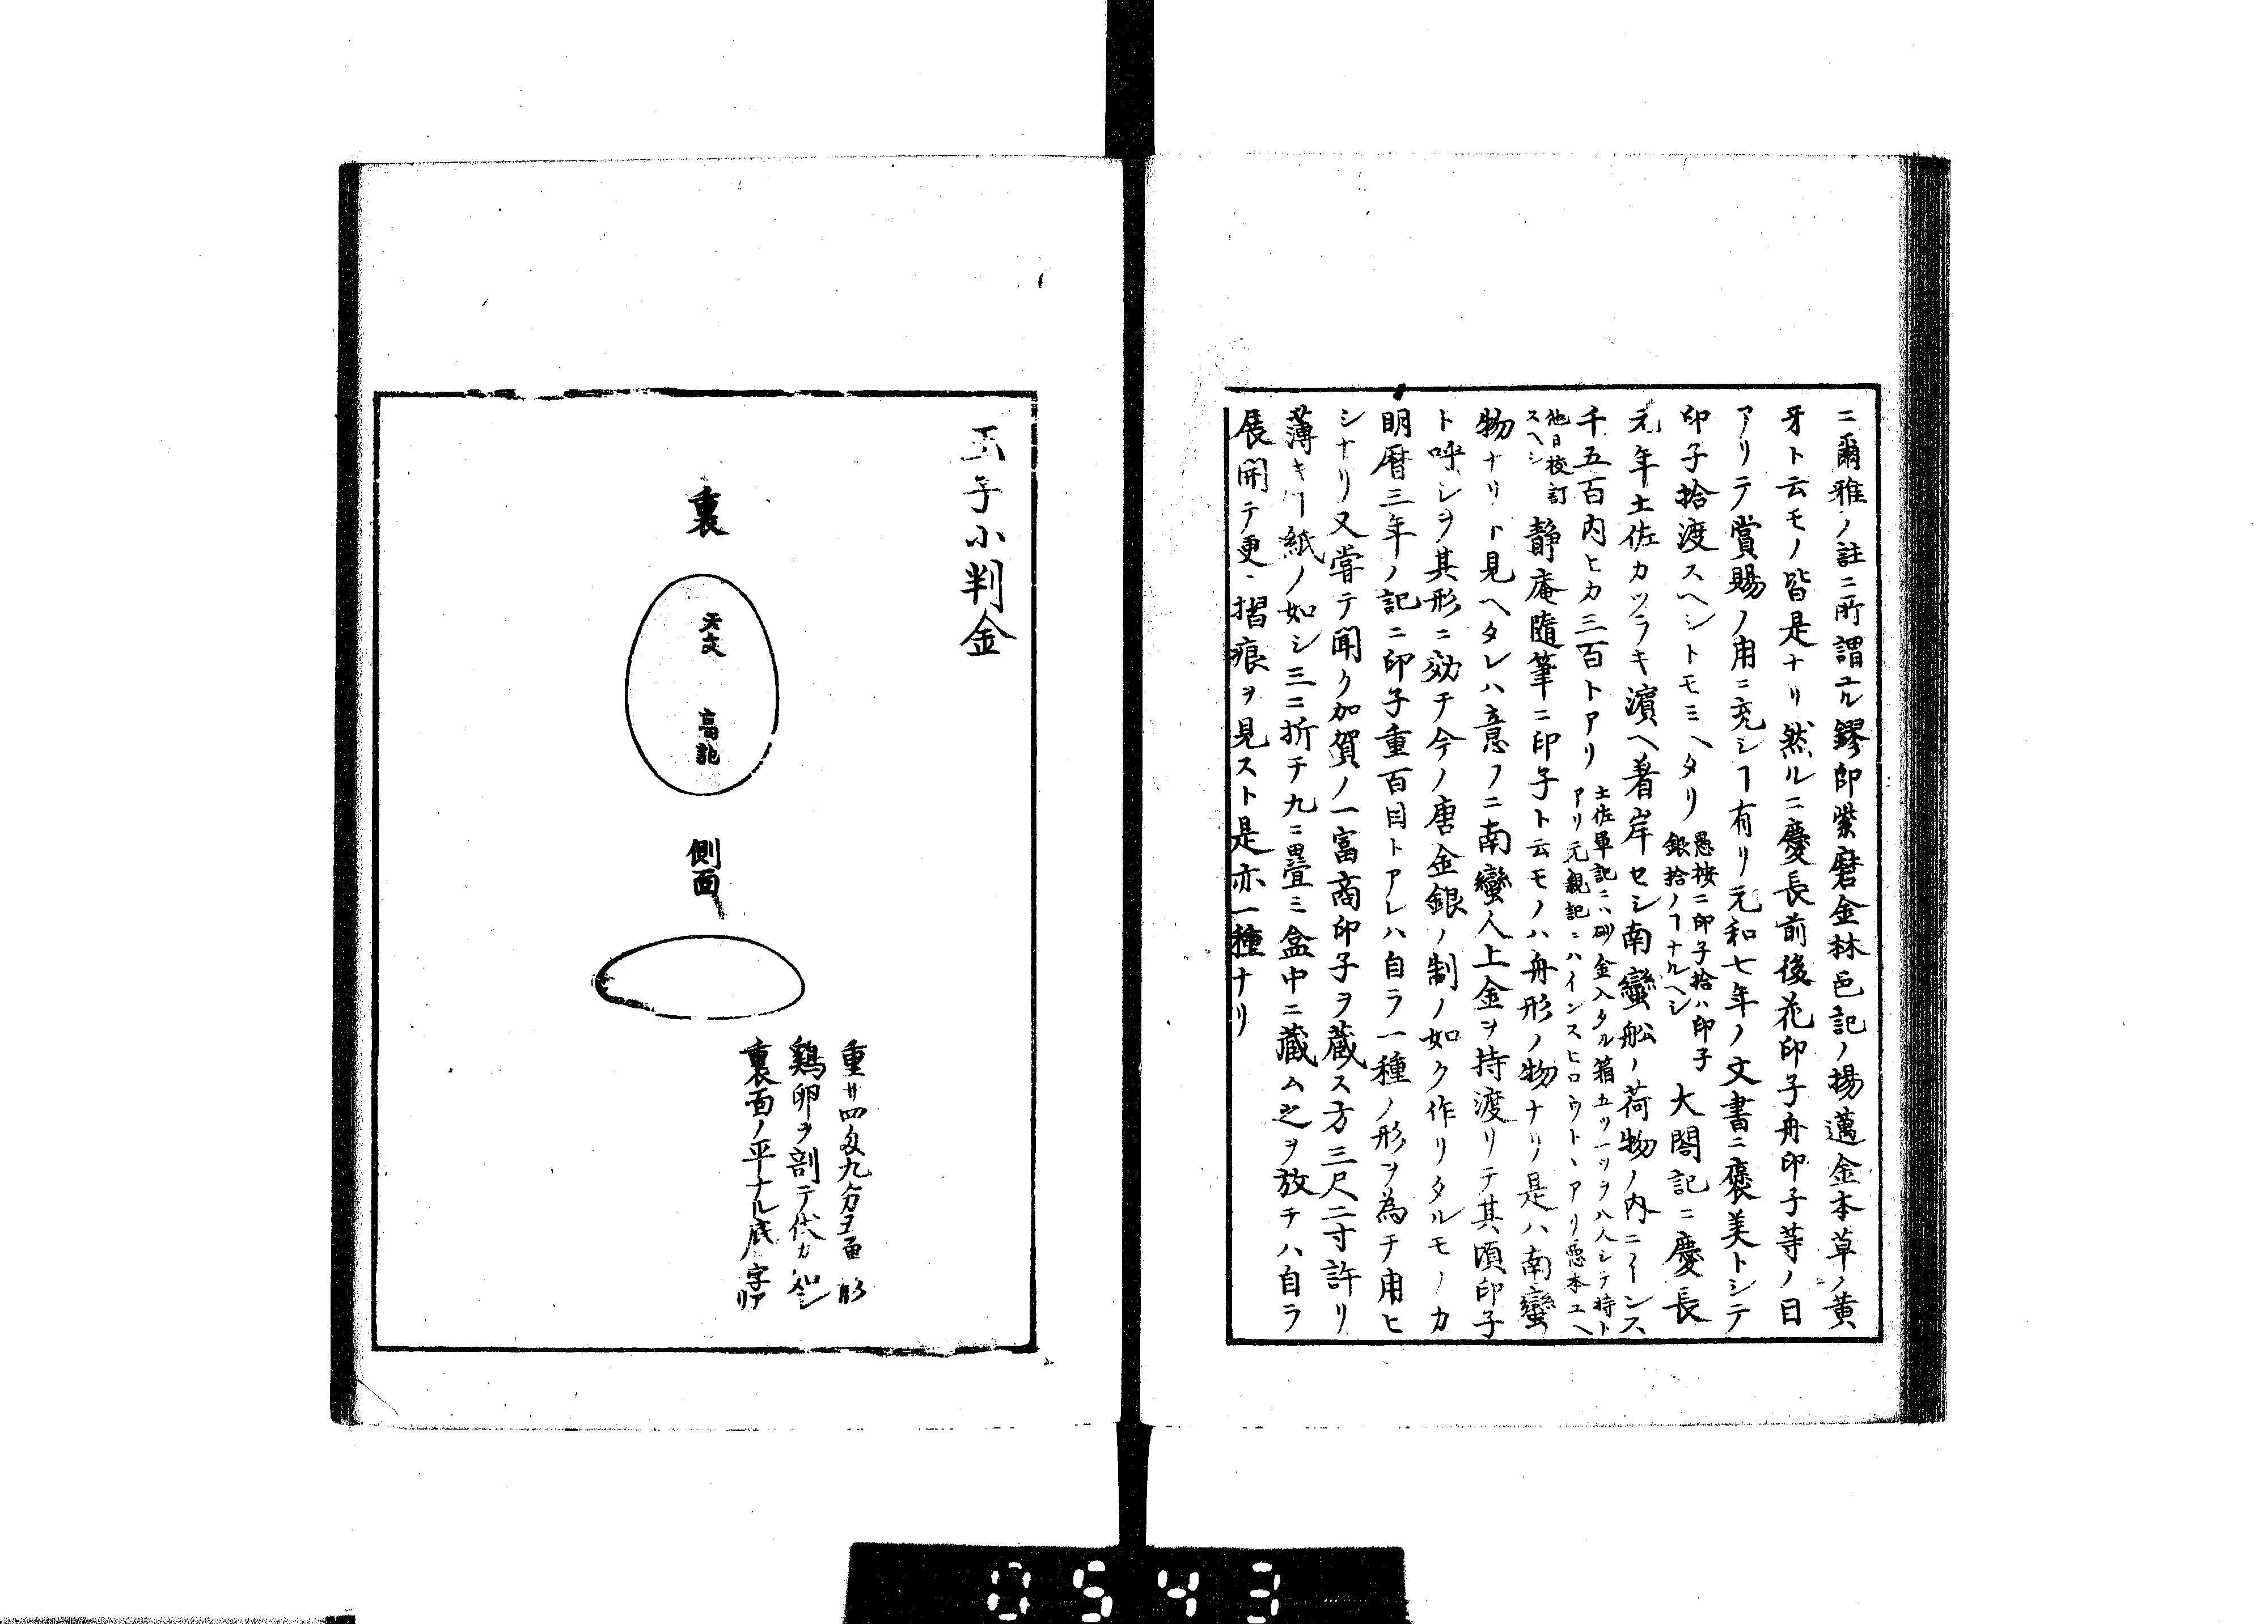 ニ爾雅ノ註ニ所謂ユル鏐印紫磨金林邑記ノ揚邁金本草ノ黄
牙ト云モノ皆是ナリ然ルニ慶長前後花印子舟印子等ノ目
アリテ賞賜ノ用ニ充シヿ有リ元和七年ノ文書ニ褒美トシテ
印子拾渡スヘシトモミヘタリ
愚按ニ印子拾ハ印子
銀拾ノヿナルヘシ
大閤記ニ慶長
元年土佐カツラキ濱ヘ着岸セシ南蠻舩ノ荷物ノ内ニインス
千五百内ヒカ三百トアリ
土佐軍記ニハ砂金入タル箱五ツ一ツヲ八人シテ持ト
アリ元親記ニハインスヒロウト、アリ悪本ユヘ
他日校訂
スヘシ
静庵随筆ニ印子ト云モノハ舟形ノ物ナリ是ハ南蠻
物ナリト見ヘタレハ意フニ南蠻人上金ヲ持渡リテ其頃印子
ト呼シヲ其形ニ効チ今ノ唐金銀ノ制ノ如ク作リタルモノカ
明暦三年ノ記ニ印子重百目トアレハ自ラ一種ノ形ヲ為チ用ヒ
シナリ又嘗テ聞ク加賀ノ一富商印子ヲ蔵ス方三尺二寸許リ
薄キヿ紙ノ如シ三ニ折チ九ニ疊ミ盒中ニ蔵ム之ヲ放チハ自ラ
展開テ更ニ摺痕ヲ見スト是亦一種ナリ
玉子小判金
裏
天文
高記
側面
重サ四匁九分五
形
鶏卵ヲ剖テ伏カ如シ
裏面ノ平ナル底ニ字アリ
0543